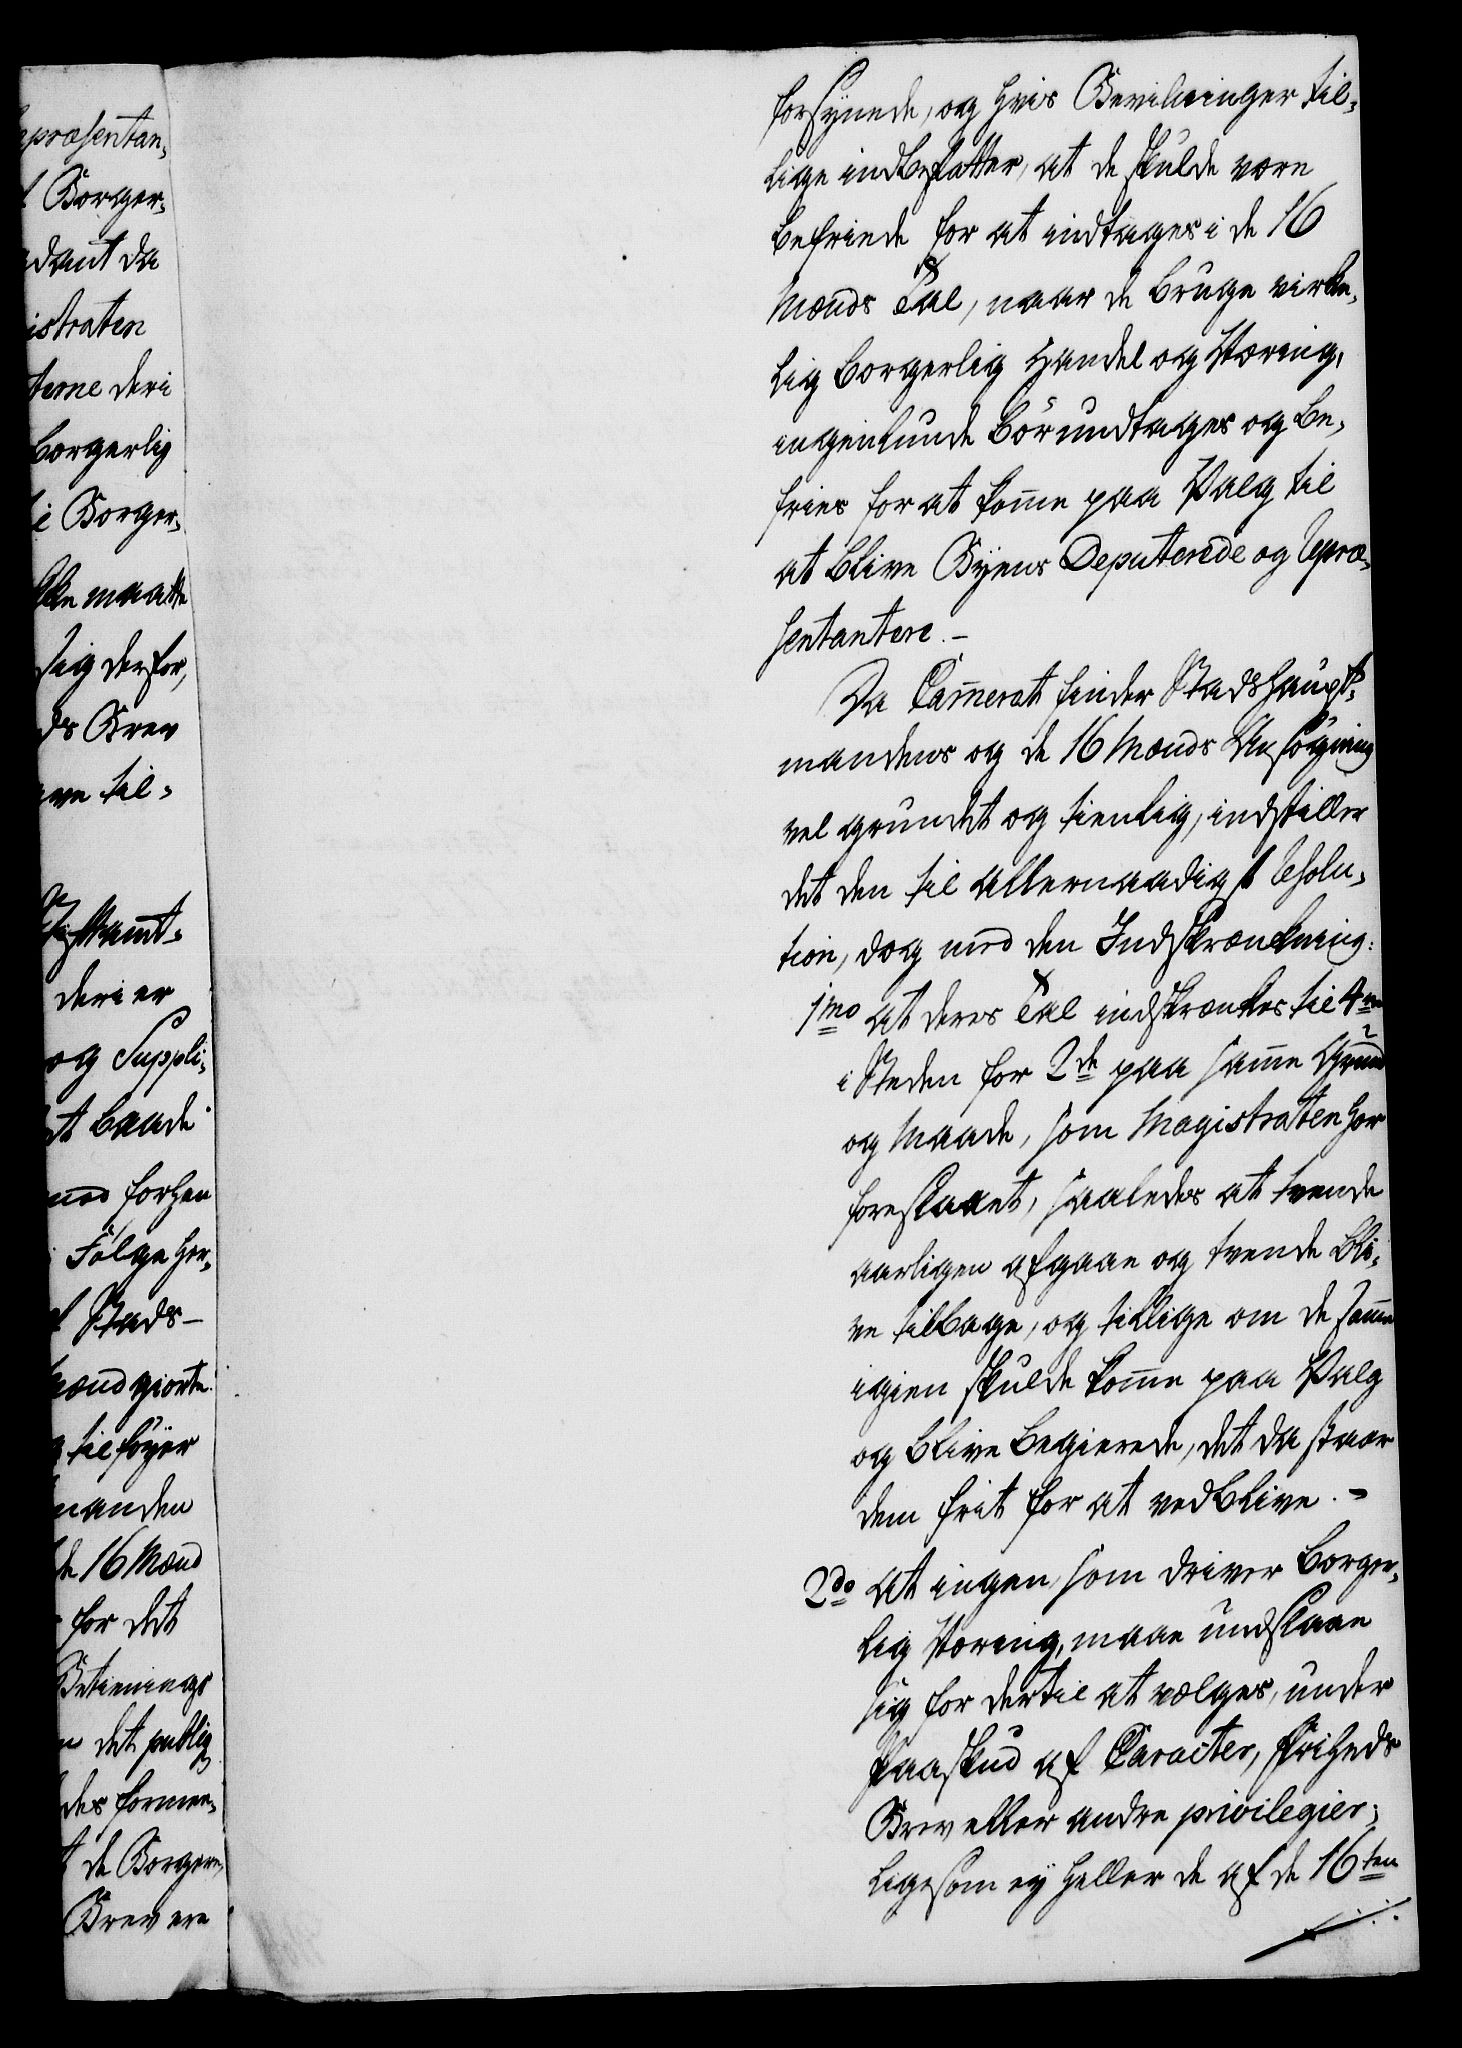 præsentan,
Borger,
dant da
istraten
terne deri
borgerlig
i Borger,
kke maatte
sig derfor,
ds Brev
ve til,
Stiftamt,
deri er
og Suppli,
t baade
med forhen
Følge her,
Stads-
Mænd giorte
tilføyer
manden
de 16 Mænd
for det
Betienings
det publig
des formee,
de Borgere,
Brev ere
forsÿnede, og hvis Bevilninger til,
lige indbefatter, at de skulde være
befriede for at indtages i de 16
Mænds Tal, naar de bruge virke,
lig borgerlig Handel og Næring,
ingenlunde bör undtages og be,
fries for at komme paa Valg til
at blive Bÿens Deputerede og Repræ,
sentantere. -
Da Cammeret finder Stadshaupt,
mandens og de 16 Mænds Ansögning
vel grundet og tienlig, indstiller
det den til allernaadigst Resolu,
tion, dog med den Indskrænckning:
1mo at deres Tal indskrænkes til 4re
i Steden for 2de paa samme Grund
og Maade, som Magistraten har
foreslaaet, saaledes at tvende
aarligen afgaae og tvende bli,
ve tilbage, og tillige om de samme
igien skulde komme paa Valg
og blive begierede, det da staar
dem frit for at vedblive. -
2do at ingen, som driver borger,
lig Næring, maae undslaae
sig for dertil at vælges, under
Paaskud af Caracter, Friheds
Brev eller andre privilegier,
ligesom eÿ heller de af de 16ten